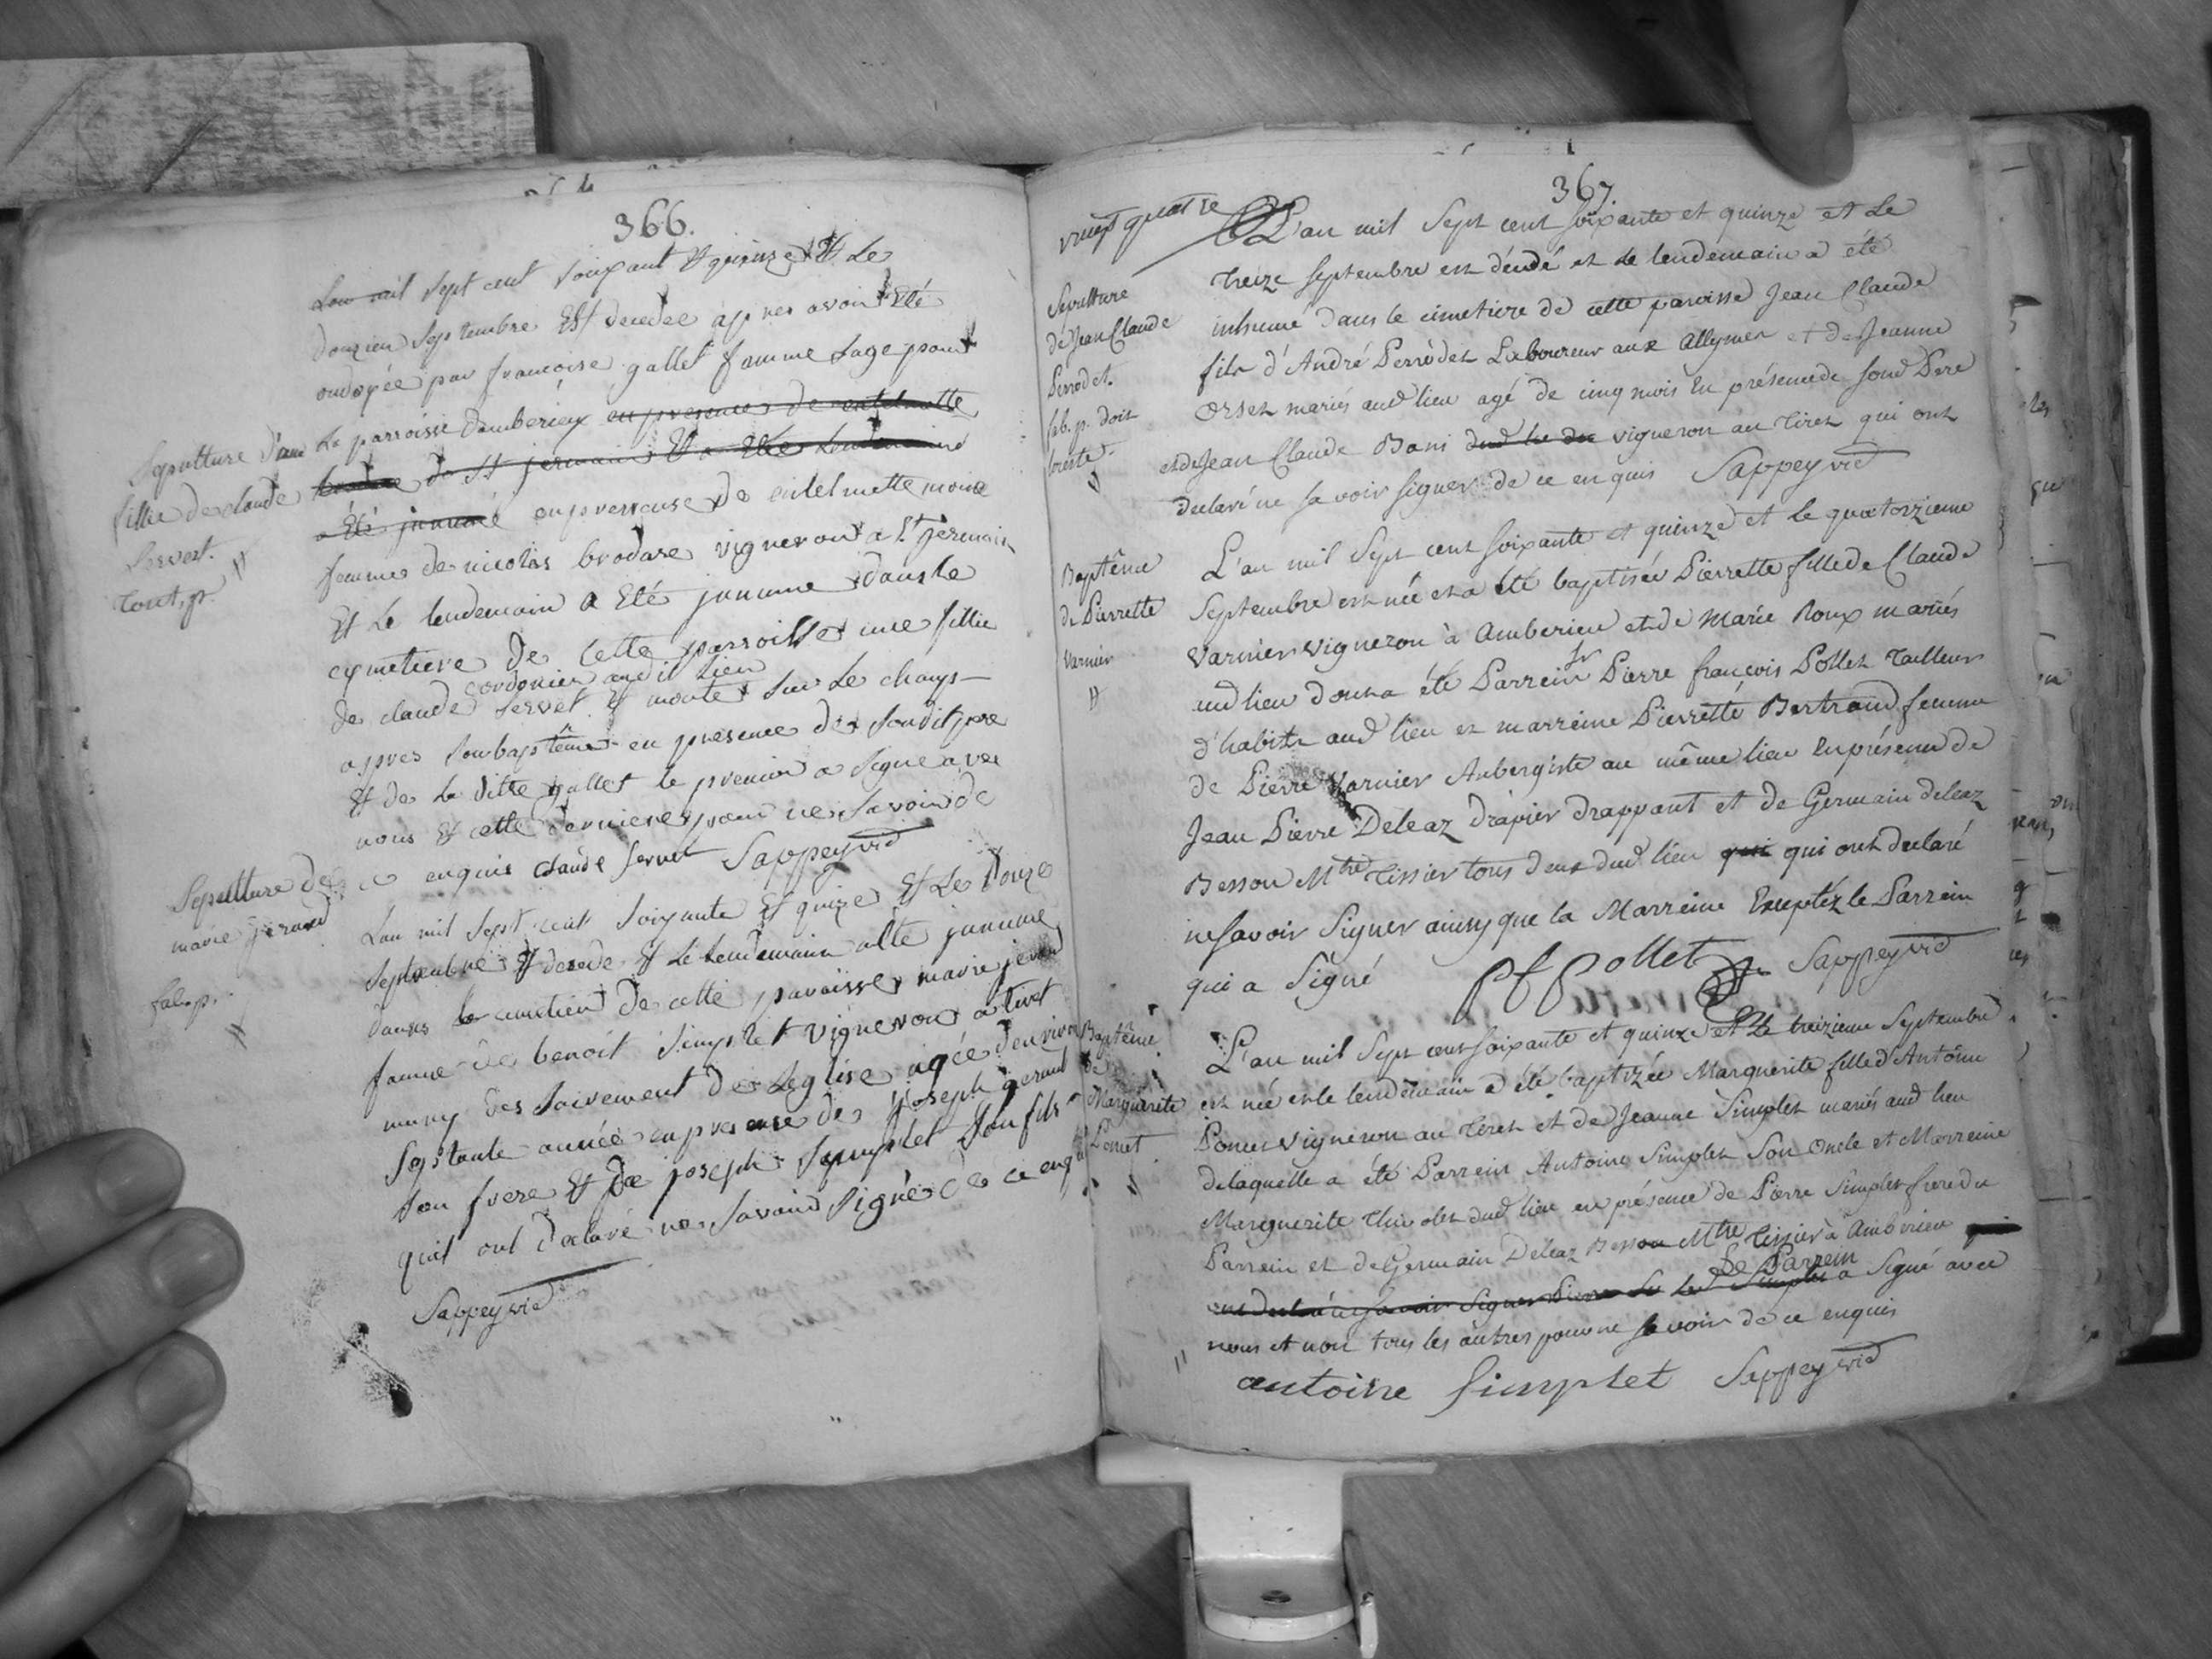 366.
Lan mil sept cent soixant & quinze & le
douzieu septembre Est decedee apres avoir Eté
ondoyée par francoise gallet famme sage pour
la parroisse damberieux en presence de entelmette
de St jermain & a Eté lendemaind
a Eté jnnumé enpressense de entelmette
femme de nicolas brodare vigneron a St jermain
Et Le lendemain a Eté jnnume dans le
cymetiere de cette parroisse une fillie
cordonier audit lieu
de claude servet & morte sur le champs
apres son baptême en presence de sondit pere
& de la ditte gallet le premier a signe avec
nous & cette derniere pour ne savoir de
ce enquis claude servet Sappey vic
Sepulture d'une
fillie de claude
servet.
tout. p.
Sepulture de
marie gerand
fab. p.
Lan mil sept cent soixante & quinze & Le Douze
septembre & decede & Le lendemain a été jnnume
danss le cimetier de cette paroisse marie jerand
famme de benoit simplet vigneron a tiret
muny des sacrement de Leglise agée denviron
septante année enpresense de joseph gerand
son frere & de joseph symplet son fils
quit ont declaré ne savoir signé de ce enquis
Sappey vic
367.
vingt quatre
L'an mil sept cent soixante et quinze et le
treize septembre est décédé et le lendemain a été
inhumé dans le cimetiere de cette paroisse Jean Claude
fils d'André Perrodet Laboureur aux allymes et de Jeanne
Orset mariés aud lieu agé de cinq mois En présence de soud Pere
et de Jean Claude Bani vigneron au tiret qui ont
declaré ne savoir signer de ce enquis Sappey vic
Sepulture
de Jean Claude
Perrodet.
fab. p. doit
Baptême
de Pierrette
Varnier
L'an mil sept cent soixante et quinze et le quatorzieme
septembre est née et a été baptisée Pierrette fille de Claude
Varnier vigneron à Amberieu et de Marie Roux mariés
aud lieu dont a été Parrein Sr Pierre françois Pollet Tailleur
d'habits aud lieu et marreine Pierrette Bertrand femme
de Pierre Varnier Aubergiste au même lieu En présence de
Jean Pierre Deleaz drapier drappant et de Germain deleaz
Besson Mtre Tissier tous deux dud lieu qui qui ont declaré
ne savoir signer ainsy que la Marreine Exceptéz le Parrein
qui a signé pf pollet Sappey vic
Baptême
de
Marguerite
Poncet
L'an mil sept cent soixante et quinze et Le treizieme Septembre
est née et le lendemain a été baptizée Marguerite fille d'Antoine
Poncet vigneron au tiret et de Jeanne Simplet mariés aud lieu
de laquelle a été Parrein Antoine Simplet Son Oncle et Marreine
Marguerite Thivolet dud lieu en présence de Pierre Simplet frere du
Parrein et de Germain Deleaz Besson Mtre Tissier à Amberieu qui
Le Parrein
ont declaré ne savoir signer Pierre a signé avec
nous et non tous les autres pour ne savoir de ce enquis
antoine simplet Sappey vic